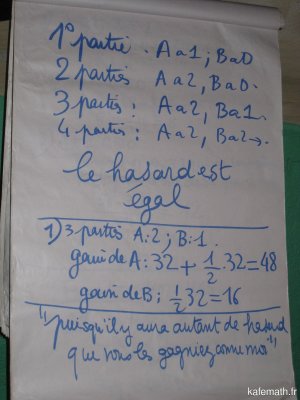 1° partie . A a 1 ; B a 0
2 parties A a 2, B a 0.
3 parties : A a 2, B a 1.
4 parties : A a 2, B a 2 →.
le hasard est
égal
1) 3 parties A : 2 ; B : 1.
gain de A : 32 + 1/2 . 32 = 48
gain de B ; 1/2 32 = 16
"puisqu'il y aura autant de hasard
que vous les gagniez comme moi"
kafemath.fr